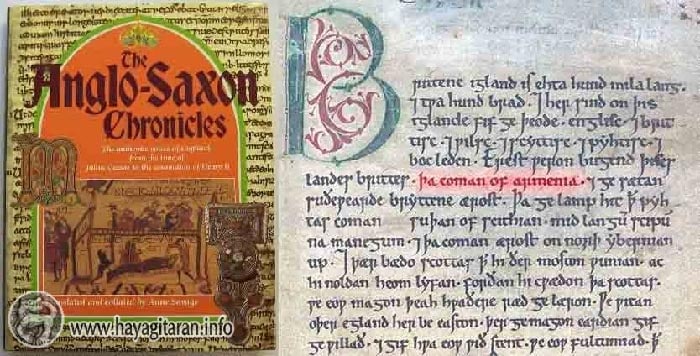 The
Anglo-Saxon
Chronicles
The authentic voices of England,
from the time of
Julius Caesar to the coronation of Henry II
Translated and collated by Anne Savage
www.hayagitaran.info
Brittene igland is ehta hund mila lang.
⁊ tƿa hund brad. ⁊ her sind on þis
iglande fif ge þeode. englisc. ⁊ brit
tisc. ⁊ ƿilsc. ⁊ scyttisc. ⁊ pyhtisc. ⁊
boc leden. Erest ƿeron bugend þises
landes brittes. þa coman of armenia. ⁊ ge sætan
suðeƿearde bryttene ærost. Þa ge lamp hit þ̄ pyh
tas coman suþan of scithian. mid langū scipū
na manegum. ⁊ þa coman ærost on norþ ybernian
up. ⁊ þær bædo scottas þ̄ hi ðer moston ƿunian. ac
hi noldan heom lyfan. forðan hi cƿædon þa scottas.
ƿe eoƿ magon þeah hƿaðere ræd ge læron. Ƿe ƿitan
oþer egland her be easton. þer ge magon eardian gif
ge ƿillað. ⁊ gif hƿa eoƿ ƿið stent. ƿe eoƿ fultumiað. þ̄